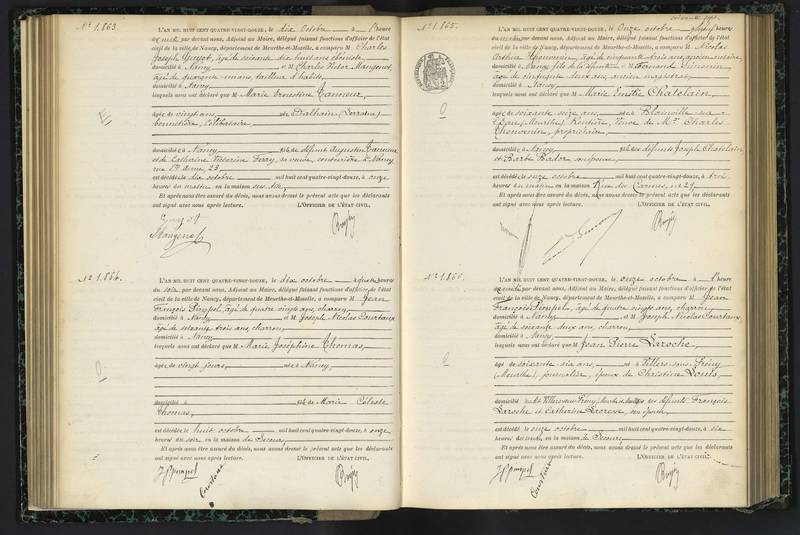 N° 1863.
L'AN MIL HUIT CENT QUATRE-VINGT-DOUZE, le dix octobre à l'heure
de midi, par devant nous, Adjoint au Maire, délégué faisant fonctions d'officier de l'état
civil de la ville de Nancy, département de Meurthe-et-Moselle, a comparu M Charles
Joseph Guyot, âgé de soixante dix huit ans, ébéniste,
domicilié à Nancy et M Charles Victor Mangenot,
âgé de quarante un ans, tailleur d'habits,
domicilié à Nancy
lesquels nous ont déclaré que M Marie Ernestine
âgée de vingt ans, née à Dalhain (Lorraine)
célibataire,
domiciliée à Nancy, fille de défunt Augustin
et de Catherine Victorine Ferry, sa veuve, couturière à Nancy,
rue Ste Anne, 28
est décédée le dix octobre mil huit cent quatre-vingt-douze, à onze
heures du matin en la maison sus dite,
Et après nous être assuré du décès, nous avons dressé le présent acte que les déclarants
ont signé avec nous après lecture. L'OFFICIER DE L'ÉTAT CIVIL,
Guyot
Mangenot
N° 1864.
L'AN MIL HUIT CENT QUATRE-VINGT-DOUZE, le dix octobre à quatre heures
du soir, par devant nous, Adjoint au Maire, délégué faisant fonctions d'officier de l'état
civil de la ville de Nancy, département de Meurthe-et-Moselle, a comparu M Jean
François Pimpel, âgé de quatre vingts ans, charron,
domicilié à Nancy et M Joseph Nicolas Courtaux
âgé de soixante trois ans, charron,
domicilié à Nancy
lesquels nous ont déclaré que M Marie Joséphine Thomas,
âgée de vingt jours, née à Nancy
domiciliée à fille de Marie Céleste
Thomas,
est décédée le huit octobre mil huit cent quatre-vingt-douze, à onze
heures du soir en la maison de Secours,
Et après nous être assuré du décès, nous avons dressé le présent acte que les déclarants
ont signé avec nous après lecture. L'OFFICIER DE L'ÉTAT CIVIL,
soixante sept.
N° 1865.
L'AN MIL HUIT CENT QUATRE-VINGT-DOUZE, le onze octobre heure
par devant nous, Adjoint au Maire, délégué faisant fonctions d'officier de l'état
civil de la ville de Nancy, département de Meurthe-et-Moselle, a comparu M Nicolas
Arthur Thouvenin, âgé de cinquante trois ans, ancien notaire
domicilié à Nancy, fils de la défunte et M Fernand
âgé de cinquante deux ans, ancien magistrat,
domicilié à Nancy
lesquels nous ont déclaré que M Marie Emélie Chatelain,
âgée de soixante seize ans, née à Blainville sur
l'Eau (Meurthe), Rentière, veuve de Mr Charles
Thouvenin, propriétaire,
domiciliée à Nancy, fille des défunts Joseph Chatelain
et Barbe Bador, son épouse,
est décédée le onze octobre mil huit cent quatre-vingt-douze, à trois
heures du matin en la maison Rue des Carmes, n° 29,
Et après nous être assuré du décès, nous avons dressé le présent acte que les déclarants
ont signé avec nous après lecture. L'OFFICIER DE L'ÉTAT CIVIL,
N° 1866.
L'AN MIL HUIT CENT QUATRE-VINGT-DOUZE, le onze octobre à l'heure
de midi, par devant nous, Adjoint au Maire, délégué faisant fonctions d'officier de l'état
civil de la ville de Nancy, département de Meurthe-et-Moselle, a comparu M Jean
François Pimpel, âgé de quatre vingts ans, charron,
domicilié à Nancy et M Joseph Nicolas Courtaux,
âgé de soixante deux ans, charron,
domicilié à Nancy
lesquels nous ont déclaré que M Jean Pierre Laroche,
âgé de soixante six ans, né à Villers-sous-Prény
(Meurthe), journalier, époux de Christine Louis,
domicilié à Villers-sous-Prény, fils des défunts François
Laroche et Catherine son épouse,
est décédé le onze octobre mil huit cent quatre-vingt-douze, à dix
heures du matin en la maison de Secours,
Et après nous être assuré du décès, nous avons dressé le présent acte que les déclarants
ont signé avec nous après lecture. L'OFFICIER DE L'ÉTAT CIVIL,